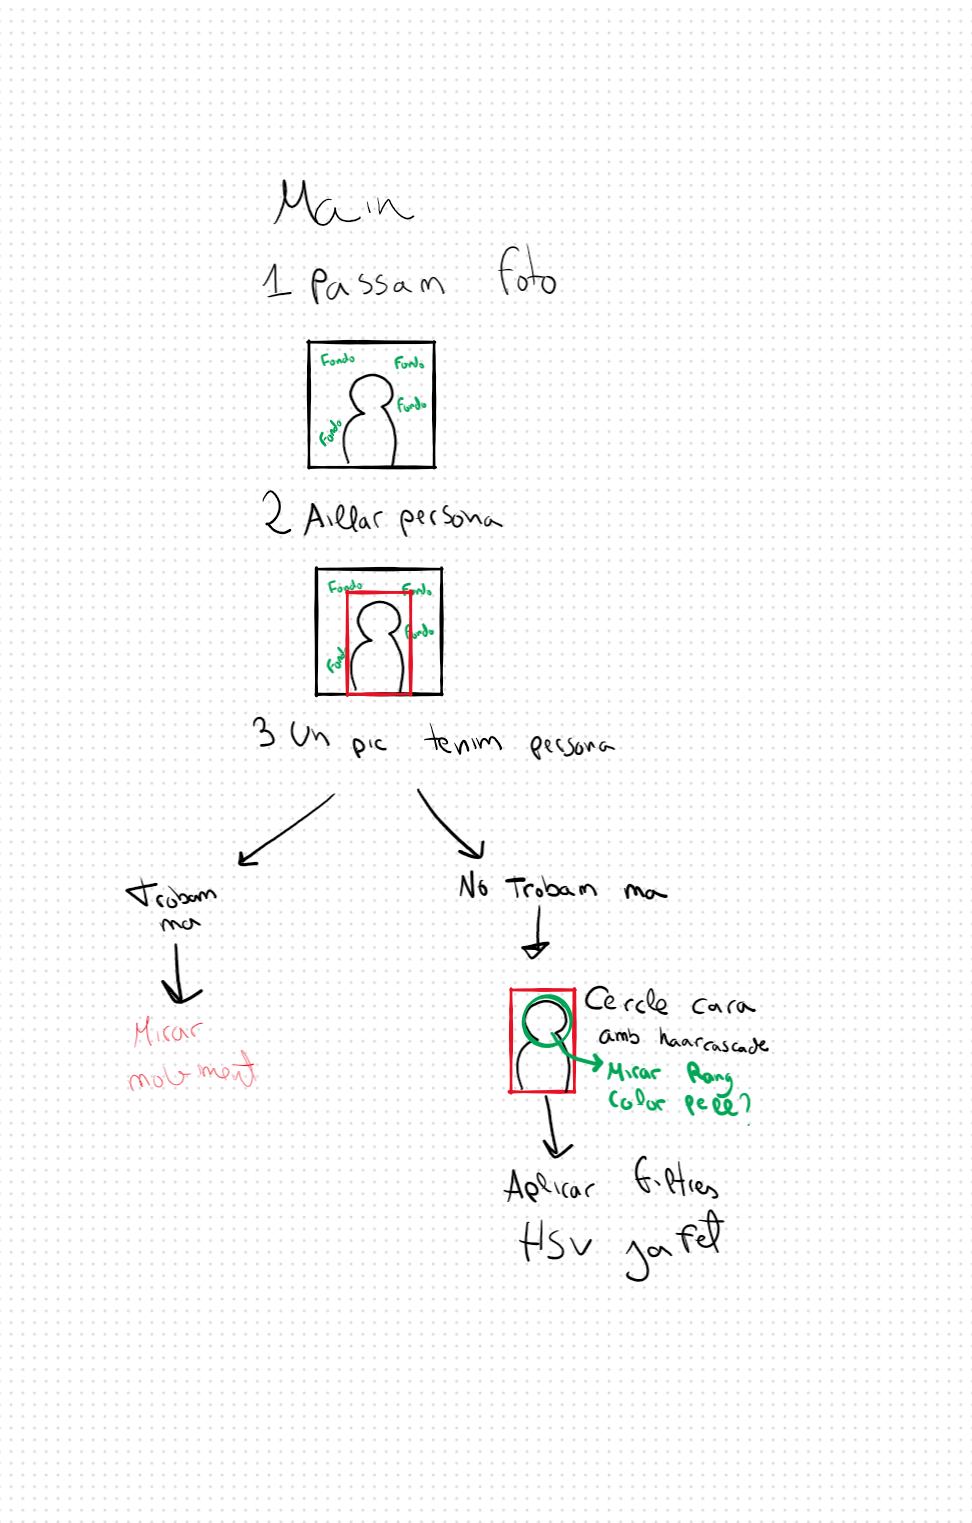 Main
1 Passam foto
Fondo Fondo
Fondo
Fondo
2 Aillar persona
Fondo Fondo
Fondo
Fondo
3 Un pic tenim persona
Trobam
ma
No Trobam ma
Mirar
moviment
Cercle cara
amb haarcascade
Mirar Rang
color pell?
Aplicar filtres
HSV ja fet